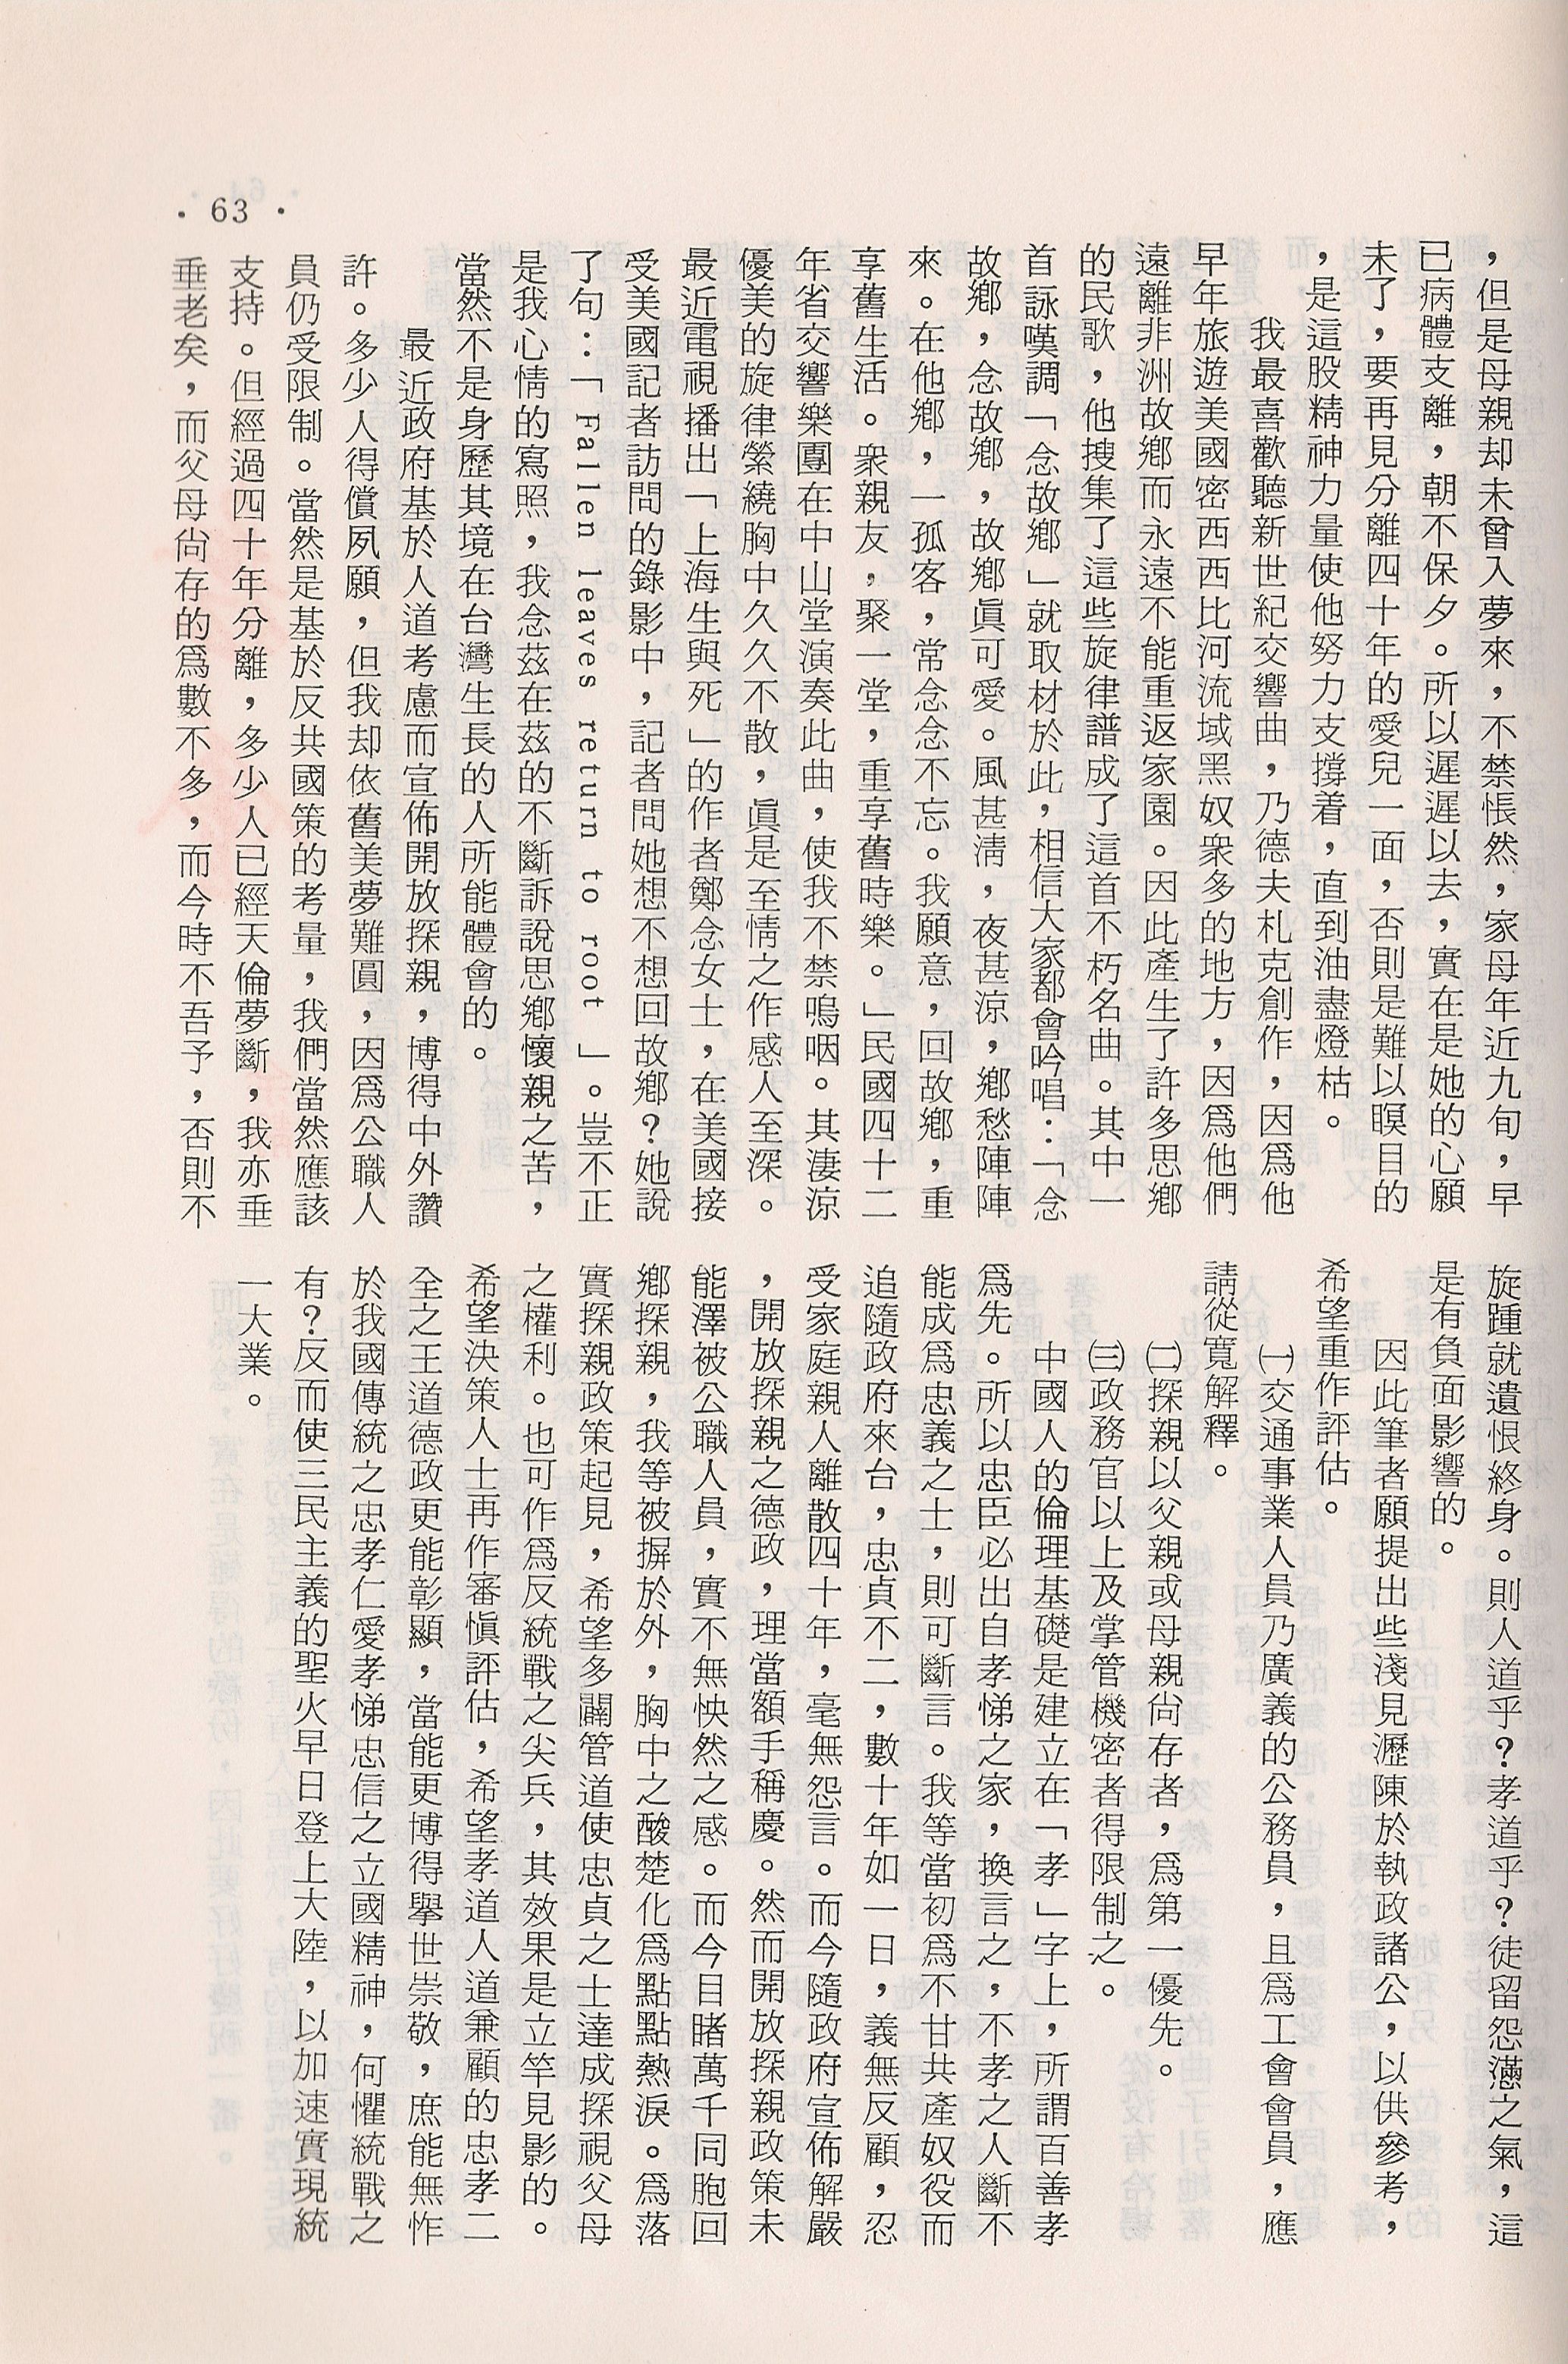 ，但是母親却未曾入夢來，不禁悵然，家母年近九旬，早
已病體支離，朝不保夕。所以遲遲以去，實在是她的心願
未了，要再見分離四十年的愛兒一面，否則是難以瞑目的
，是這股精神力量使他努力支撐着，直到油盡燈枯。
我最喜歡聽新世紀交響曲，乃德夫札克創作，因爲他
早年旅遊美國密西西比河流域黑奴衆多的地方，因爲他們
遠離非洲故鄉而永遠不能重返家園。因此產生了許多思鄉
的民歌，他搜集了這些旋律譜成了這首不朽名曲。其中一
首詠嘆調「念故鄉」就取材於此，相信大家都會吟唱：「念
故鄉，念故鄉，故鄉眞可愛。風甚淸，夜甚涼，鄉愁陣陣
來。在他鄉，一孤客，常念念不忘。我願意，回故鄉，重
享舊生活。衆親友，聚一堂，重享舊時樂。」民國四十二
年省交響樂團在中山堂演奏此曲，使我不禁嗚咽。其淒涼
優美的旋律縈繞胸中久久不散，眞是至情之作感人至深。
最近電視播出「上海生與死」的作者鄭念女士，在美國接
受美國記者訪問的錄影中，記者問她想不想回故鄉？她說
了句：「Fallen leaves return to root」。豈不正
是我心情的寫照，我念茲在茲的不斷訴說思鄉懷親之苦，
當然不是身歷其境在台灣生長的人所能體會的。
最近政府基於人道考慮而宣佈開放探親，博得中外讚
許。多少人得償夙願，但我却依舊美夢難圓，因爲公職人
員仍受限制。當然是基於反共國策的考量，我們當然應該
支持。但經過四十年分離，多少人已經天倫夢斷，我亦垂
垂老矣，而父母尙存的爲數不多，而今時不吾予，否則不
旋踵就遺恨終身。則人道乎？孝道乎？徒留怨懣之氣，這
是有負面影響的。
因此筆者願提出些淺見瀝陳於執政諸公，以供參考，
希望重作評估。
㈠交通事業人員乃廣義的公務員，且爲工會會員，應
請從寬解釋。
㈡探親以父親或母親尙存者，爲第一優先。
㈢政務官以上及掌管機密者得限制之。
中國人的倫理基礎是建立在「孝」字上，所謂百善孝
爲先。所以忠臣必出自孝悌之家，換言之，不孝之人斷不
能成爲忠義之士，則可斷言。我等當初爲不甘共產奴役而
追隨政府來台，忠貞不二，數十年如一日，義無反顧，忍
受家庭親人離散四十年，毫無怨言。而今隨政府宣佈解嚴
，開放探親之德政，理當額手稱慶。然而開放探親政策未
能澤被公職人員，實不無怏然之感。而今目睹萬千同胞回
鄉探親，我等被摒於外，胸中之酸楚化爲點點熱淚。爲落
實探親政策起見，希望多闢管道使忠貞之士達成探視父母
之權利。也可作爲反統戰之尖兵，其效果是立竿見影的。
希望決策人士再作審愼評估，希望孝道人道兼顧的忠孝二
全之王道德政更能彰顯，當能更博得擧世崇敬，庶能無怍
於我國傳統之忠孝仁愛孝悌忠信之立國精神，何懼統戰之
有？反而使三民主義的聖火早日登上大陸，以加速實現統
一大業。
• 63 •